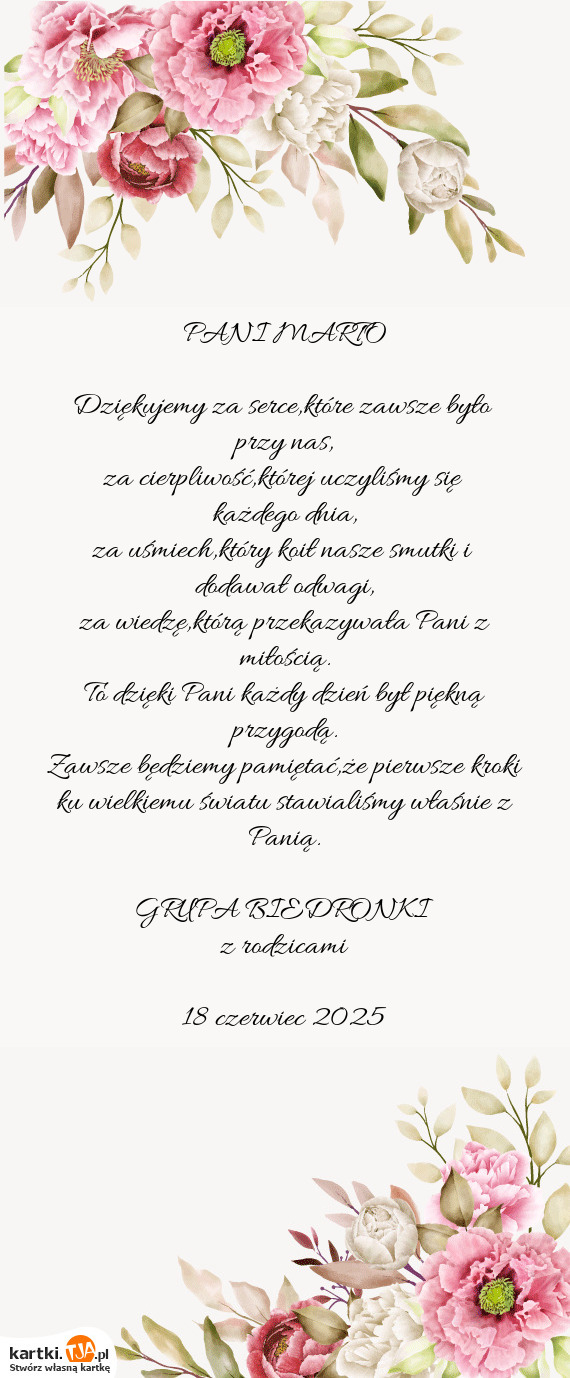 PANI MARTO
Dziękujemy za serce,które zawsze było
przy nas,
za cierpliwość,której uczyliśmy się
każdego dnia,
za uśmiech,który koił nasze smutki i
dodawał odwagi,
za wiedzę,którą przekazywała Pani z
miłością.
To dzięki Pani każdy dzień był piękną
przygodą.
Zawsze będziemy pamiętać,że pierwsze kroki
ku wielkiemu światu stawialiśmy właśnie z
Panią.
GRUPA BIEDRONKI
z rodzicami
18 czerwiec 2025
kartki.TJA.pl
Stwórz własną kartkę